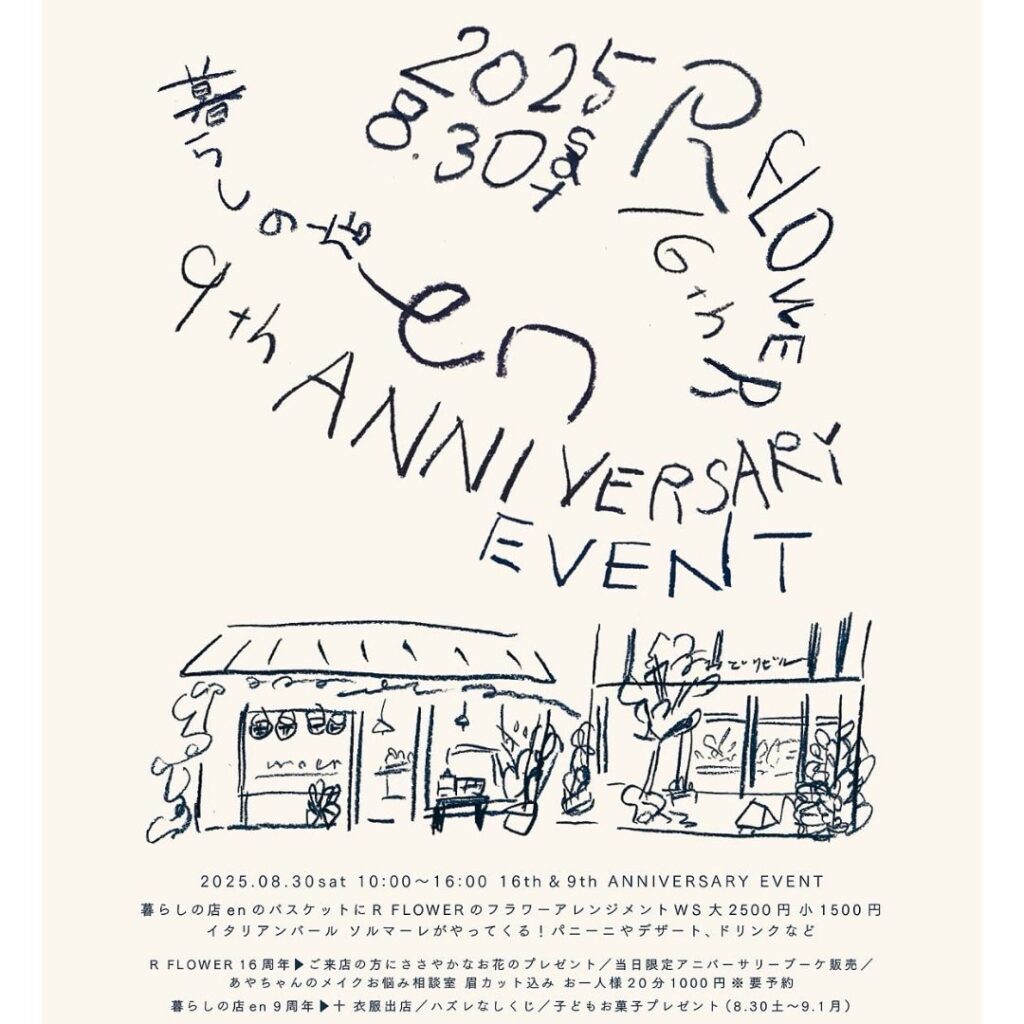 2025
8.30 sat
R FLOWER
16th
暮らしの店 en
9th
ANNIVERSARY
EVENT
みどりビル
2025.08.30sat 10:00〜16:00 16th & 9th ANNIVERSARY EVENT
暮らしの店 en のバスケットに R FLOWER のフラワーアレンジメント WS 大 2500 円 小 1500 円
イタリアンバール ソルマーレがやってくる！パニーニやデザート、ドリンクなど
R FLOWER 16 周年▶ご来店の方にささやかなお花のプレゼント／当日限定アニバーサリーブーケ販売／
あやちゃんのメイクお悩み相談室 眉カット込み お一人様 20 分 1000 円 ※ 要予約
暮らしの店 en 9 周年▶十 衣服出店／ハズレなしくじ／子どもお菓子プレゼント（8.30 土〜9.1 月）